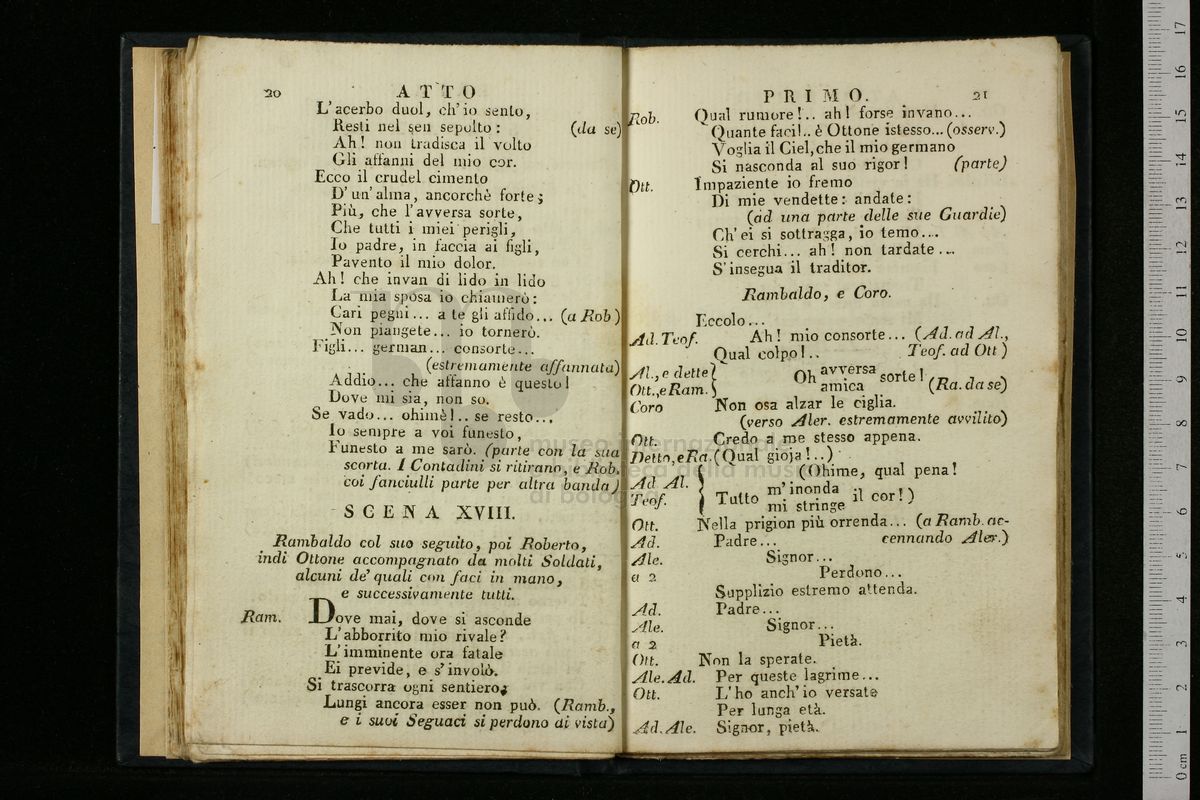 20 ATTO
L'acerbo duol, ch'io sento,
Resti nel sen sepolto: (da se)
Ah! non tradisca il volto
Gli affanni del mio cor.
Ecco il crudel cimento
D'un'alma, ancorchè forte;
Più, che l'avversa sorte,
Che tutti i miei perigli,
Io padre, in faccia ai figli,
Pavento il mio dolor.
Ah! che invan di lido in lido
La mia sposa io chiamerò:
Cari pegni... a te gli affido... (a Rob)
Non piangete... io tornerò.
Figli... german... consorte...
(estremamente affannata)
Addio... che affanno è questo!
Dove mi sia, non so.
Se vado... ohimè!.. se resto...
Io sempre a voi funesto,
Funesto a me sarò. (parte con la sua
scorta. I Contadini si ritirano, e Rob.
coi fanciulli parte per altra banda)
SCENA XVIII.
Rambaldo col suo seguito, poi Roberto,
indi Ottone accompagnato da molti Soldati,
alcuni de' quali con faci in mano,
e successivamente tutti.
Ram. Dove mai, dove si asconde
L'abborrito mio rivale?
L'imminente ora fatale
Ei previde, e s'involò.
Si trascorra ogni sentiero;
Lungi ancora esser non può. (Ramb.,
e i suoi Seguaci si perdono di vista)
PRIMO. 21
Rob. Qual rumore!.. ah! forse invano...
Quante faci!.. è Ottone istesso... (osserv.)
Voglia il Ciel, che il mio germano
Si nasconda al suo rigor! (parte)
Ott. Impaziente io fremo
Di mie vendette: andate:
(ad una parte delle sue Guardie)
Ch'ei si sottragga, io temo...
Si cerchi... ah! non tardate...
S'insegua il traditor.
Rambaldo, e Coro.
Eccolo...
Ad. Teof. Ah! mio consorte... (Ad. ad Al.,
Qual colpo!.. Teof. ad Ott)
Al., e dette Oh avversa sorte!
Ott., e Ram. amica (Ra. da se)
Coro Non osa alzar le ciglia.
(verso Aler. estremamente avvilito)
Ott. Credo a me stesso appena.
Detto, e Ra. (Qual gioja!..)
Ad Al. (Ohime, qual pena!
Teof. Tutto m'inonda il cor!)
mi stringe
Ott. Nella prigion più orrenda... (a Ramb. ac-
Ad. Padre... cennando Aler.)
Ale. Signor...
a 2 Perdono...
Supplizio estremo attenda.
Ad. Padre...
Ale. Signor...
a 2 Pietà.
Ott. Non la sperate.
Ale. Ad. Per queste lagrime...
Ott. L'ho anch'io versate
Per lunga età.
Ad. Ale. Signor, pietà.
museo internazionale
biblioteca della musica
di bologna
0 cm 1 2 3 4 5 6 7 8 9 10 11 12 13 14 15 16 17